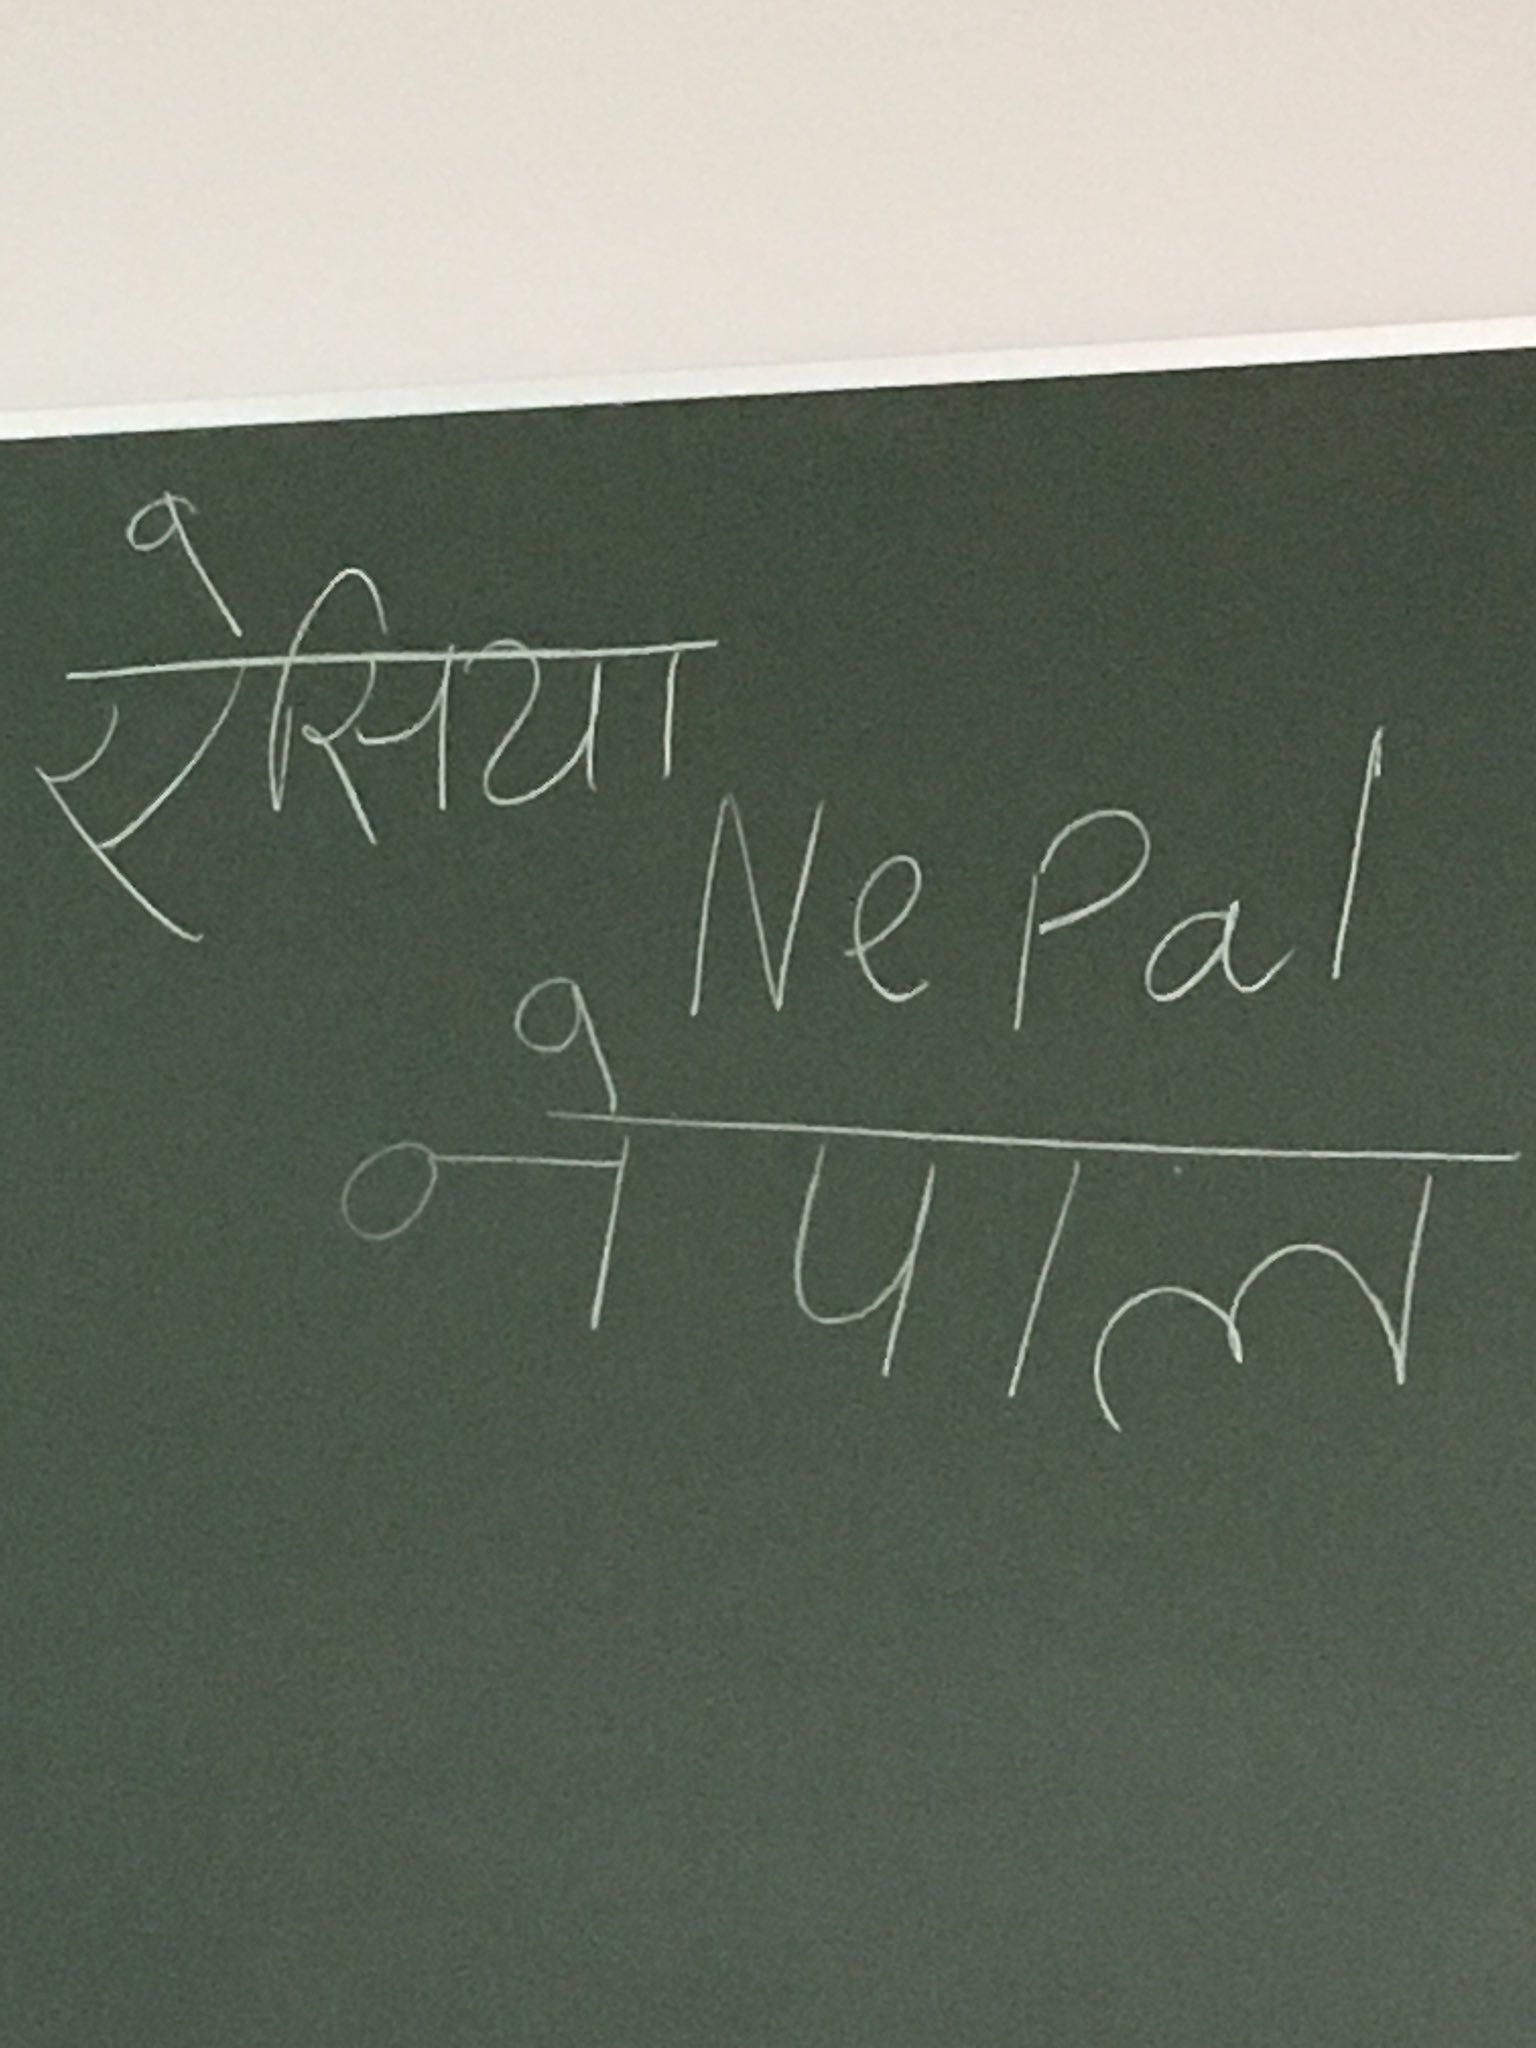 ऐसिया
Nepal
नेपाल